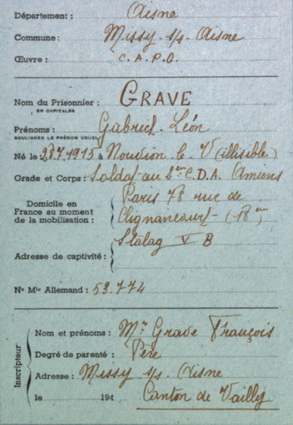 Département : Aisne
Commune : Missy s/s Aisne
Œuvre : C.A.P.G.
Nom du Prisonnier : GRAVE
EN CAPITALES
Prénoms : Gabriel-Léon
SOULIGNER LE PRÉNOM USUEL
Né le 23.7.1915 à Nouvion le V (illisible)
Grade et Corps : Soldat au 2e C.D.A. Amiens
Domicile en France au moment de la mobilisation : Paris 73 rue de
Clignancourt (18e)
Adresse de captivité : Stalag V B
No Mle Allemand : 53.774
Inscripteur
Nom et prénoms : Mr Grave François
Degré de parenté : Père
Adresse : Missy s/s Aisne
le 194 Canton de Vailly